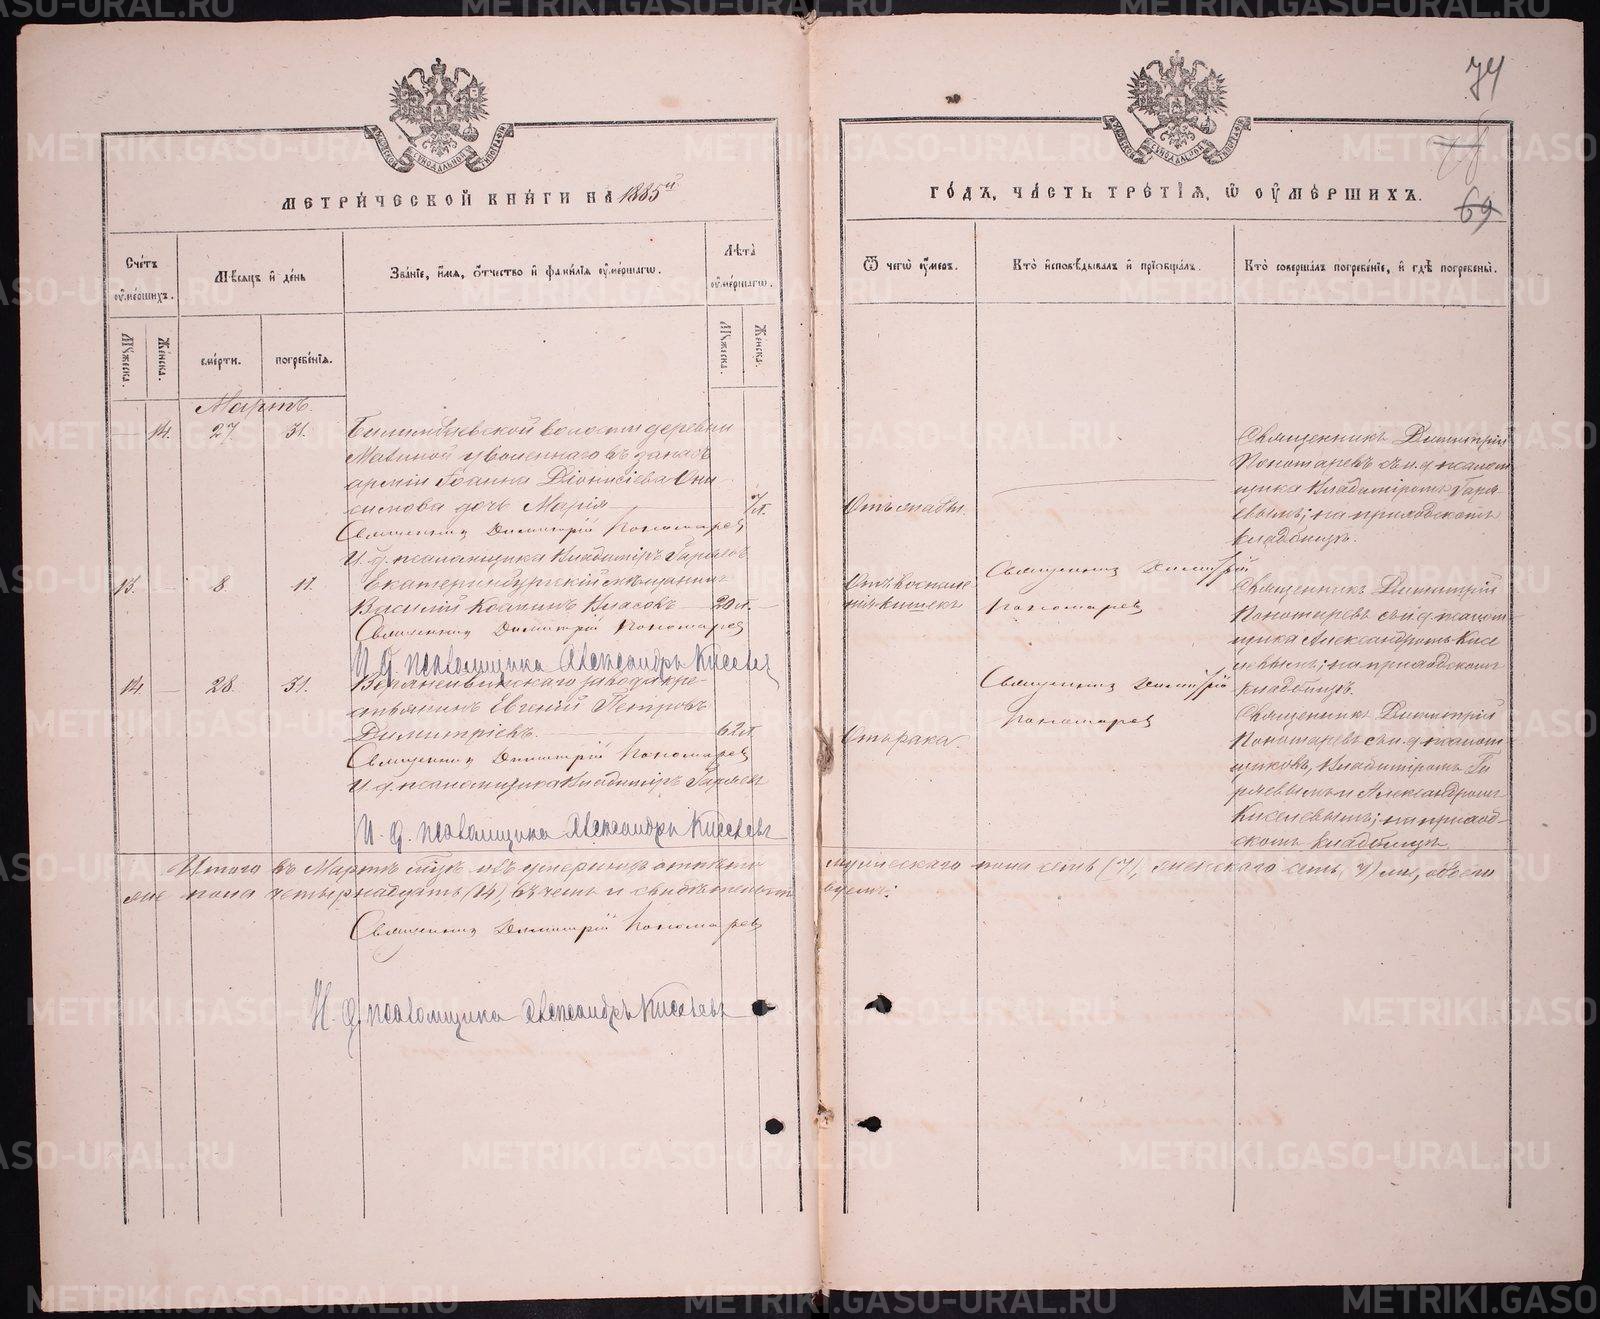 74
69
МЕТРИЧЕСКОЙ КНИГИ НА 1885й
ГОДЪ, ЧАСТЬ ТРЕТІЯ, Ѡ ОУМЕРШИХЪ.
Счетъ оумершихъ.
Мѣсяцъ и день
Званіе, имя, отчество и фамилія оумершагѡ.
Лѣта оумершагѡ.
Ѿ чегѡ оумеръ.
Кто исповѣдывалъ и пріобщалъ.
Кто совершалъ погребеніе, и гдѣ погребены.
Мужеска.
Женска.
смерти.
погребенія.
Мужеска.
Женска.
Мартъ.
14. 27. 31.
Билимбаевской волости деревни
уволеннаго въ запасъ
арміи Іоанна Діонисіева Они-
симова дочь Марія
7 л.
Священникъ Димитрій Пономаревъ
И. д. псаломщика Владиміръ
Священникъ Димитрій
Пономаревъ съ и. д. псалом-
щика Владиміромъ
на приходскомъ
кладбищѣ.
13. 8. 11.
Екатеринбургскій мѣщанинъ
Василій Власовъ 20 л.
Священникъ Димитрій Пономаревъ
И. д. псаломщика Александръ Киселевъ
Отъ воспале-
нія кишекъ
Священникъ Димитрій
Пономаревъ
Священникъ Димитрій
Пономаревъ съ и. д. псалом-
щика Александромъ Кисе-
левымъ; на приходскомъ
кладбищѣ.
14 28. 31.
Верхнейвинскаго завода кре-
стьянинъ Евгеній Петровъ
Димитріевъ. 62 л.
Священникъ Димитрій Пономаревъ
И. д. псаломщика Владиміръ
И. д. псаломщика Александръ Киселевъ
Отъ рака.
Священникъ Димитрій
Пономаревъ
Священникъ Димитрій
Пономаревъ съ и. д. псалом-
щиковъ, Владиміромъ
и Александромъ
Киселевымъ; на приход-
скомъ кладбищѣ.
Итого въ Мартѣ мѣс.
мужескаго пола семь (7), женскаго семь (7), а обоего
пола четырнадцать (14), въ чемъ и свидѣтельст-
вуемъ:
Священникъ Димитрій Пономаревъ
И. д. псаломщика Александръ Киселевъ
METRIKI.GASO-URAL.RU